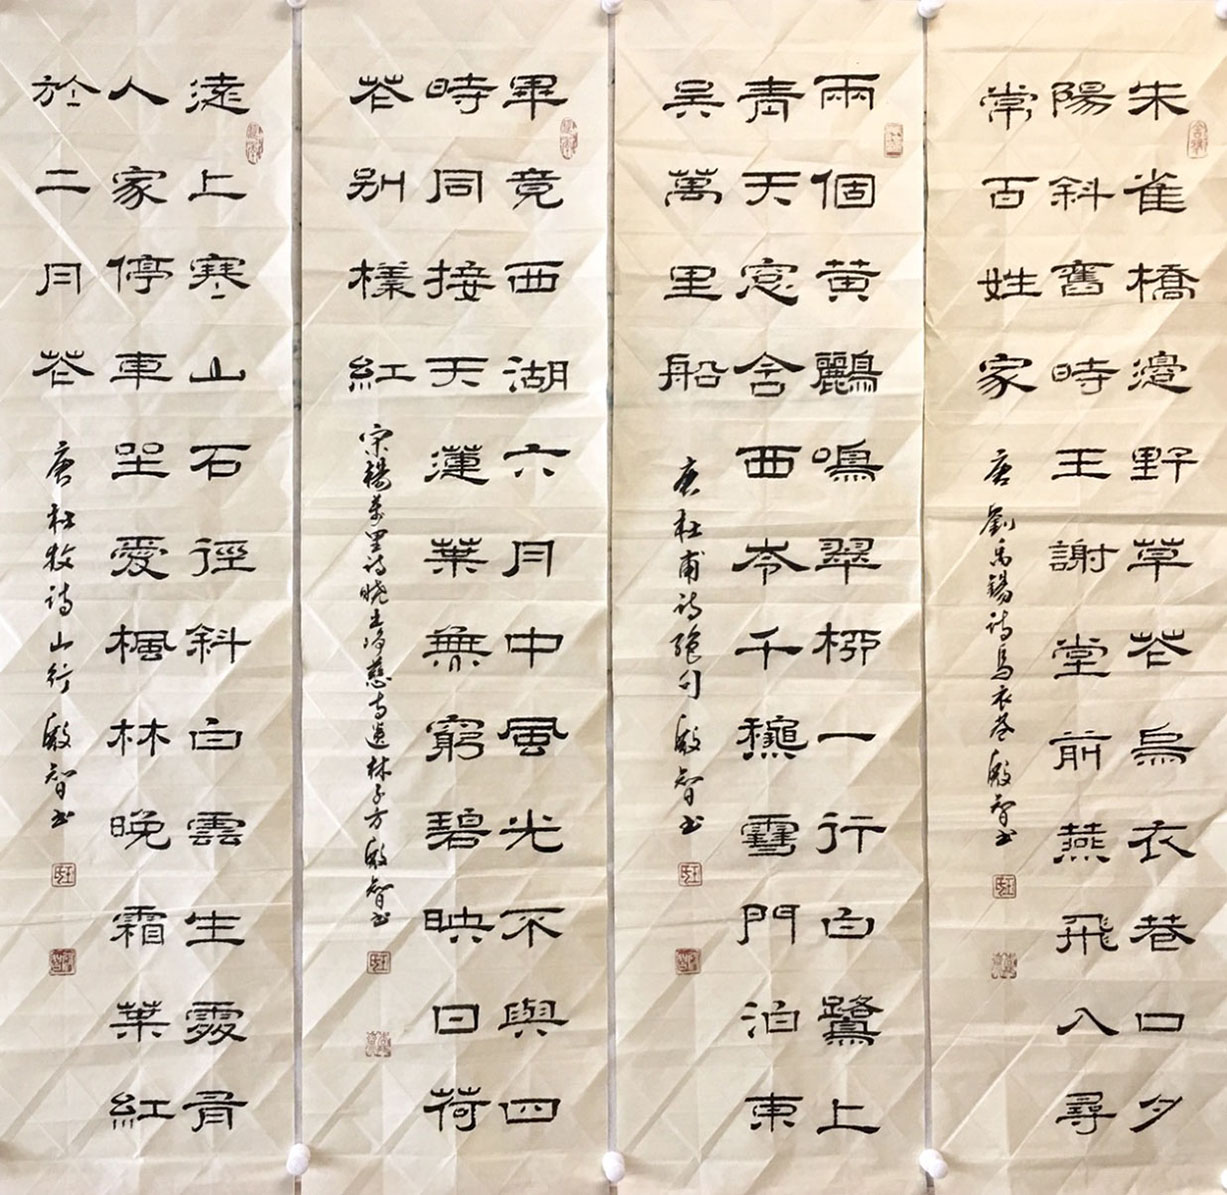 朱雀橋邊野草花烏衣巷口夕
陽斜舊時王謝堂前燕飛入尋
常百姓家
唐劉禹錫诗烏衣巷殿智书
兩個黃鸝鳴翠柳一行白鷺上
青天窓含西岺千龝雪門泊東
吳萬里船
唐杜甫诗絕句殿智书
畢竟西湖六月中風光不與四
時同接天蓮葉無窮碧映日荷
花別樣紅
宋楊萬里诗晓出净慈寺送林子方殿智书
遠上寒山石徑斜白雲生處有
人家停車坐愛楓林晚霜葉紅
於二月花
唐杜牧诗山行殿智书